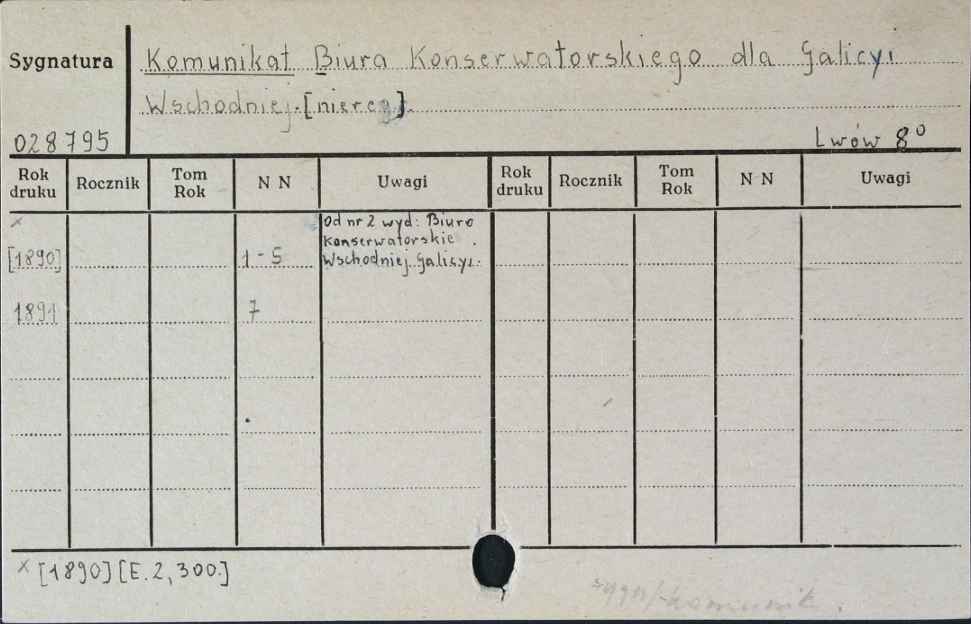 Sygnatura
Komunikat Biura Konserwatorskiego dla Galicyi
Wschodniej. [niereg].
028795
Lwów 8°
Rok druku Rocznik Tom Rok N N Uwagi Rok druku Rocznik Tom Rok N N Uwagi
x
[1890] 1-5 Od nr 2 wyd: Biuro
Konserwatorskie
Wschodniej Galicyi.
1891 7
x [1890] [E. 2, 300.]